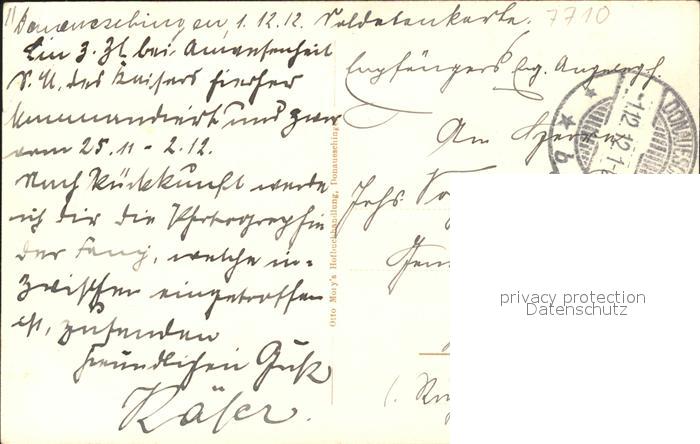 Donaueschingen, 1.12.12. Soldatenkarte.
7710
Bin z. Zt. bei Anwesenheit
S. M. des Kaisers hierher
kommandiert und zwar
vom 25.11 - 2.12.
Nach Rückkunft werde
ich dir die Photographie
der Fany, welche in-
zwischen eingetroffen
ist, zusenden
Freundlichen Gruß
Käser.
Otto Mory's Hofbuchhandlung, Donaueschingen
Empfängers Eig. Angelegh.
An Herrn
Johs.
DONAUESC
1.12.12.1-
b
privacy protection
Datenschutz